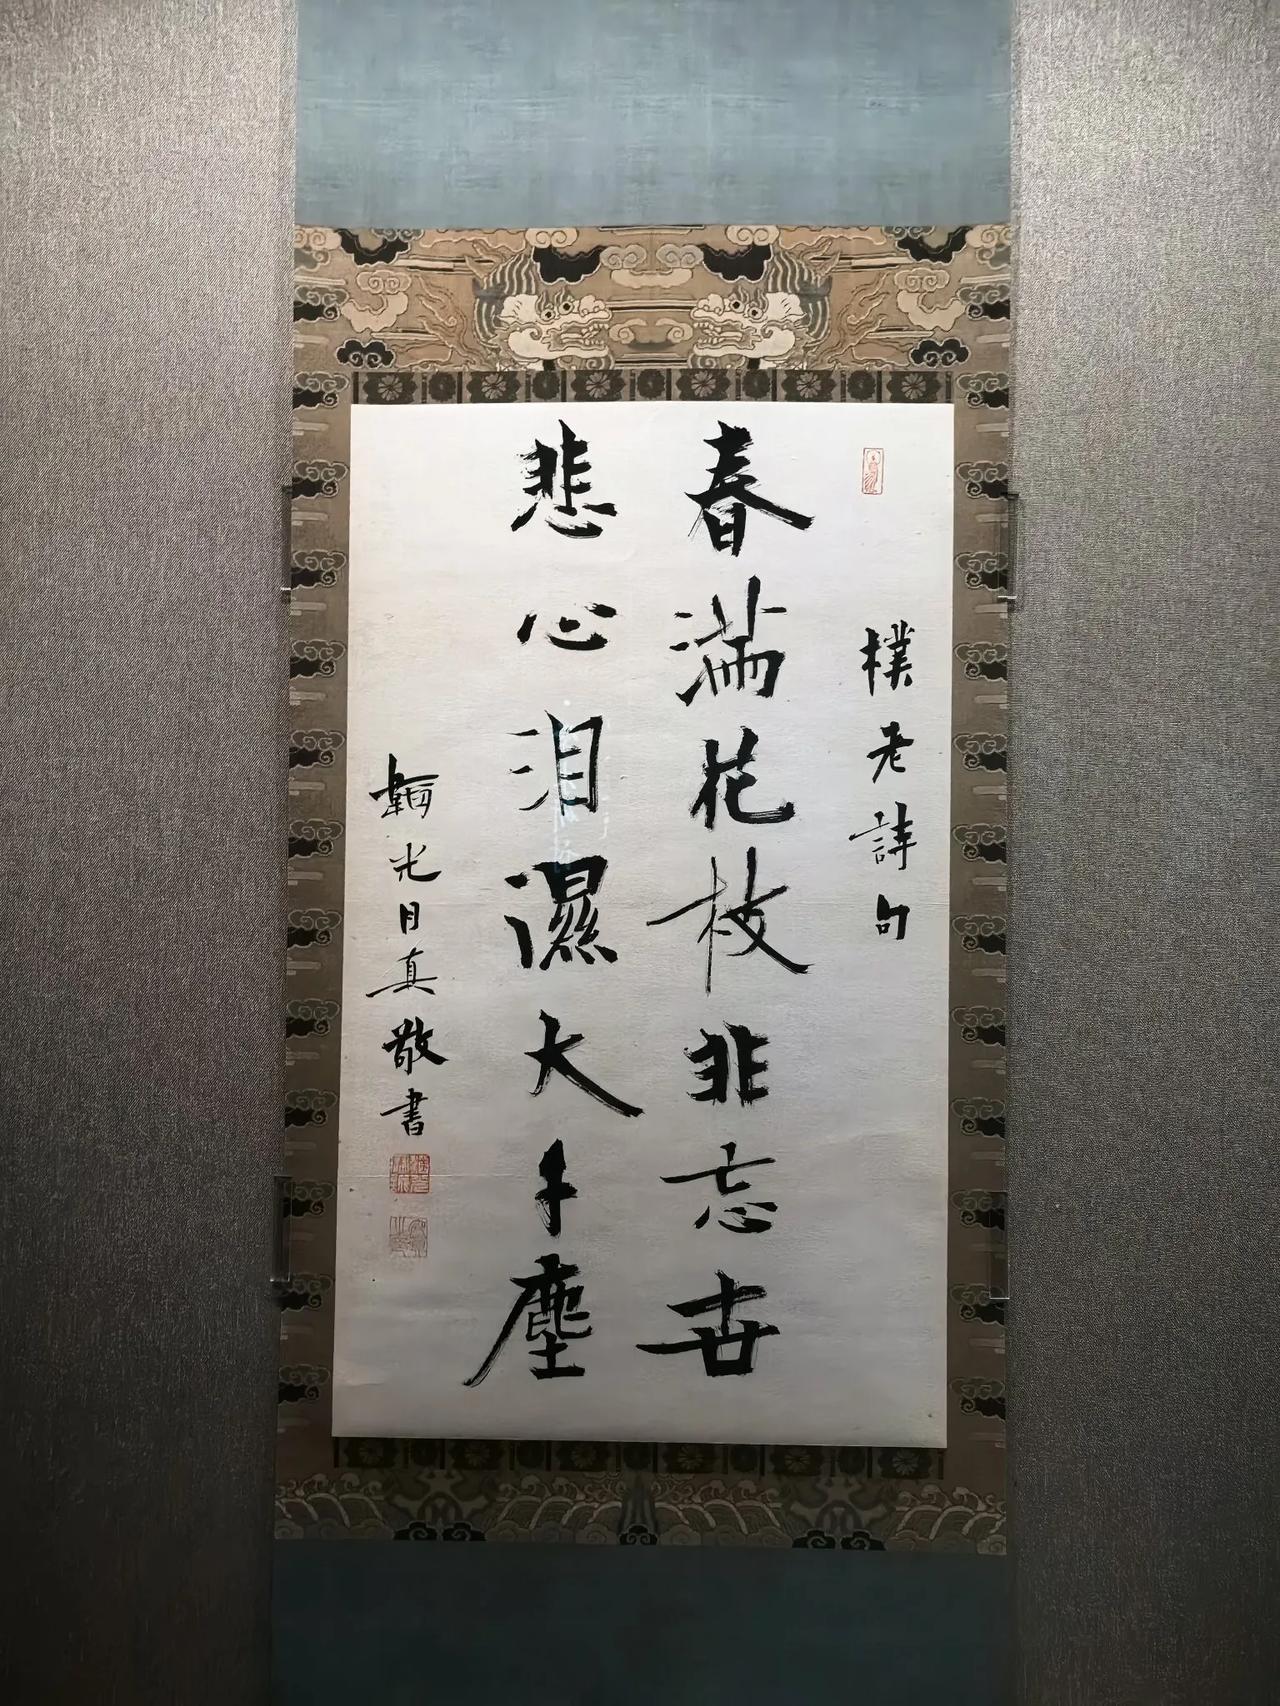 樸老詩句
春滿花枝非忘世
悲心泪濕大千塵
韜光月真敬書